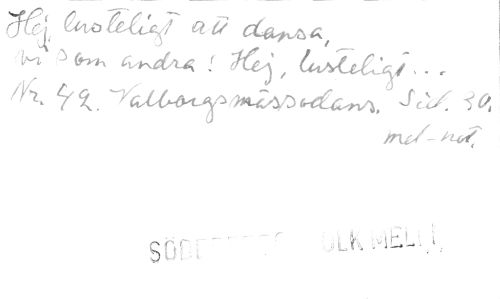 Hej, lusteligt att dansa,
vi som andra! Hej, lusteligt...
Nr. 42. Valborgsmässodans. Sid. 30.
mel-not.